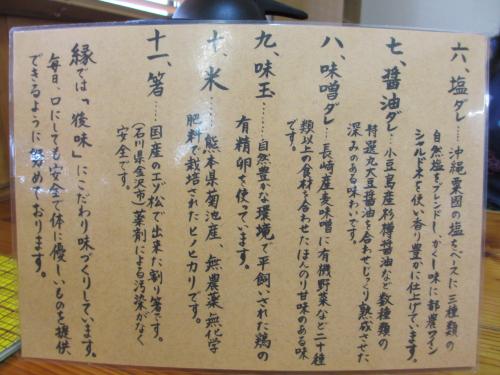 六、塩ダレ…沖縄粟国の塩をベースに三種類の
自然塩をブレンドし、かくし味に都農ワイン
シャルドネを使い香り豊かに仕上げています。
七、醤油ダレ…小豆島産杉樽醤油など数種類の
特選丸大豆醤油を合わせじっくり熟成させた
深みのある味わいです。
八、味噌ダレ…長崎産麦味噌に有機野菜など二十種
類以上の食材を合わせたほんのり甘味のある味
です。
九、味玉……自然豊かな環境で平飼いされた鶏の
有精卵を使っています。
十、米……熊本県菊池産、無農薬、無化学
肥料で栽培されたヒノヒカリです。
十一、箸……国産のエゾ松で出来た割り箸です。
(石川県金沢市)薬剤による汚染がなく
安全です。
縁では「後味」にこだわり味づくりしています。
毎日、口にしても安全で体に優しいものを提供
できるように努めております。